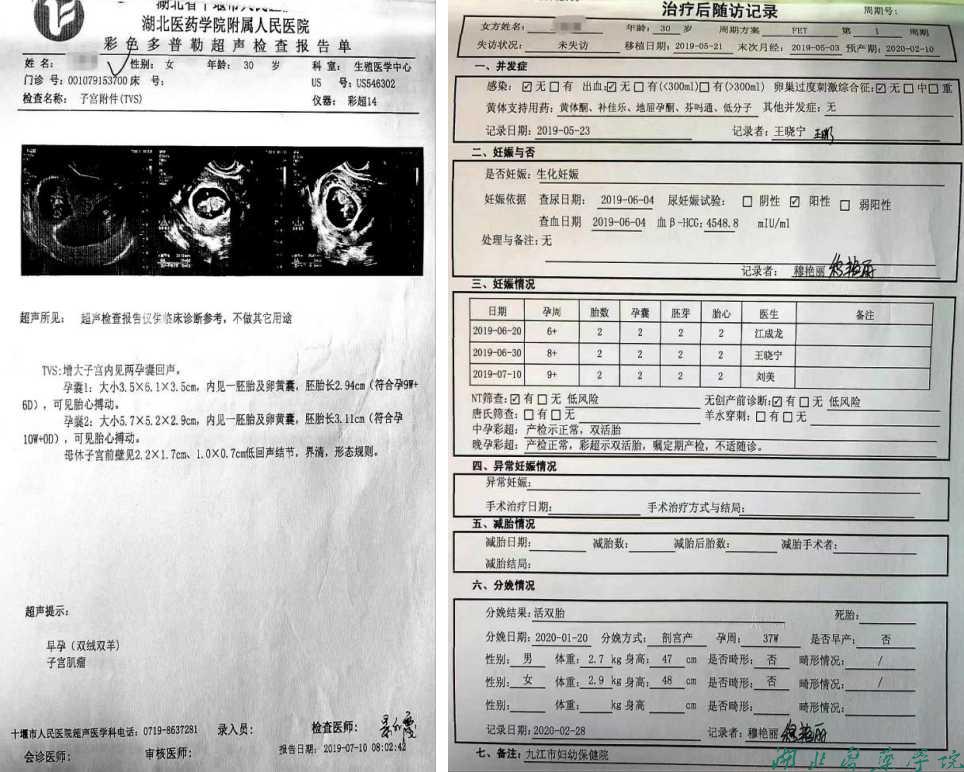 湖北省十堰市人民医院
湖北医药学院附属人民医院
彩色多普勒超声检查报告单
姓 名: 性别: 女 年龄: 30 岁 科 室: 生殖医学中心
门诊 号:001079153700 床 号: US 号:US546302
检查名称: 子宫附件(TVS) 仪器: 彩超14
超声所见: 超声检查报告仅供临床诊断参考,不做其它用途
TVS:增大子宫内见两孕囊回声。
孕囊1: 大小3.5×6.1×3.5cm, 内见一胚胎及卵黄囊, 胚胎长2.94cm(符合孕9W+
6D), 可见胎心搏动。
孕囊2: 大小5.7×5.2×2.9cm, 内见一胚胎及卵黄囊, 胚胎长3.11cm(符合孕
10W+0D), 可见胎心搏动。
母体子宫前壁见2.2×1.7cm、1.0×0.7cm低回声结节, 界清, 形态规则。
超声提示:
早孕(双绒双羊)
子宫肌瘤
十堰市人民医院超声医学科电话: 0719-8637281 录入员: 检查医师:
报告日期: 2019-07-10 08:02:42
会诊医师: 审核医师:
治疗后随访记录
周期号:
女方姓名: 年龄: 30 岁 周期方案 FET 第 1 周期
失访状况: 未失访 移植日期:2019-05-21 末次月经: 2019-05-03 预产期: 2020-02-10
一、并发症
感染: ☑无 □有 出血:☑无 □有(<300ml) □有(>300ml) 卵巢过度刺激综合征:☑无 □中 □重
黄体支持用药: 黄体酮、补佳乐、地屈孕酮、芬吗通、低分子 其他并发症: 无
记录日期: 2019-05-23 记录者: 王晓宁
二、妊娠与否
是否妊娠: 生化妊娠
妊娠依据 查尿日期: 2019-06-04 尿妊娠试验: □ 阴性 ☑ 阳性 □ 弱阳性
查血日期 2019-06-04 血β-HCG: 4548.8 mIU/ml
处理与备注: 无
记录者: 穆艳丽 穆艳丽
三、妊娠情况
日期 孕周 胎数 孕囊 胚芽 胎心 医生 备注
2019-06-20 6+ 2 2 2 2 江成龙
2019-06-30 8+ 2 2 2 2 王晓宁
2019-07-10 9+ 2 2 2 2 刘美
NT筛查: ☑有 □无 低风险 无创产前诊断: ☑有 □无 低风险
唐氏筛查: □有 □无 羊水穿刺: □有 □无
中孕彩超: 产检示正常, 双活胎
晚孕彩超: 产检正常, 彩超示双活胎, 嘱定期产检, 不适随诊。
四、异常妊娠情况
异常妊娠:
手术治疗日期: 手术治疗方式与结局:
五、减胎情况
减胎日期: 减胎数: 减胎后胎数: 减胎手术者:
减胎结局:
六、分娩情况
分娩结果: 活双胎 死胎:
分娩日期: 2020-01-20 分娩方式: 剖宫产 孕周: 37W 是否早产: 否
性别: 男 体重: 2.7 kg 身高: 47 cm 是否畸形: 否 畸形情况: /
性别: 女 体重: 2.9 kg 身高: 48 cm 是否畸形: 否 畸形情况: /
性别: 体重: kg 身高: cm 是否畸形: 畸形情况:
记录日期: 2020-02-28 记录者: 穆艳丽 穆艳丽
七、备注: 九江市妇幼保健院
湖北医药学院